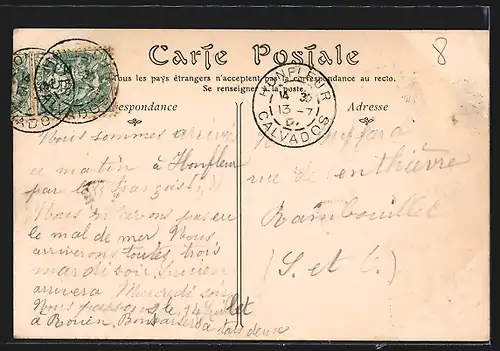 Carte Postale
Tous les pays étrangers n'acceptent pas la correspondance au recto.
Se renseigner à la poste.
respondance
Adresse
8
HONFLEUR
14 30
13 -7
CALVADOS
Nous sommes arrivé
ce matin à Honfleur
par le "français".
Nous n'avons pas eu
le mal de mer. Nous
arriverons toutes trois
mardi soir,
arrivera Mercredi soir
Nous passons le 14 juillet
à Rouen. Bons baisers
à tous deux
rue de
Rambouillet
(S. et O.)